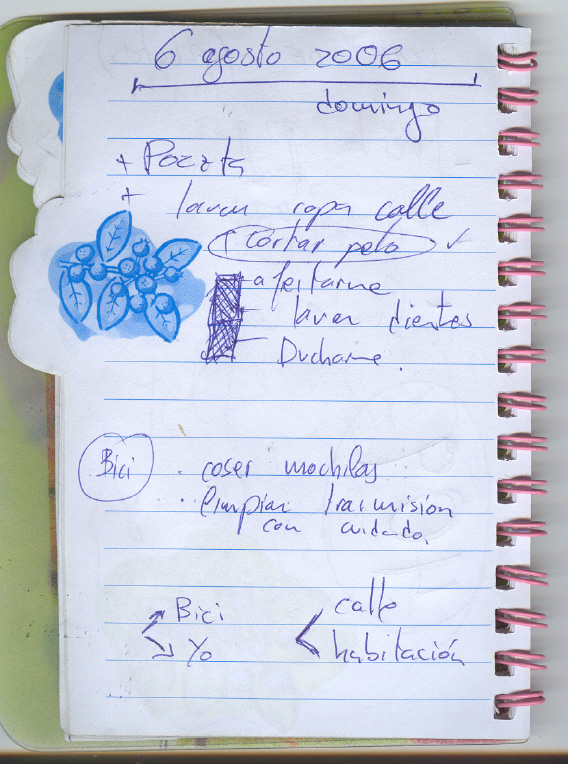 6 agosto 2006
domingo
+ Poczta
+ lavar ropa calle
Cortar pelo ✓
afeitarme
lavar dientes
Ducharme.
Bici · coser mochilas
· limpiar trasmisión
con cuidado.
Bici
Yo
calle
habitación